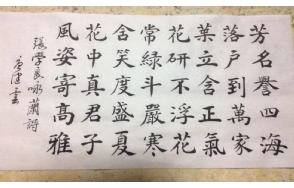 芳名譽四海
落戶到萬家
葉立含正氣
花研不浮花
常緑斗嚴寒
含笑度盛夏
花中真君子
風姿寄高雅
張學良咏蘭詩